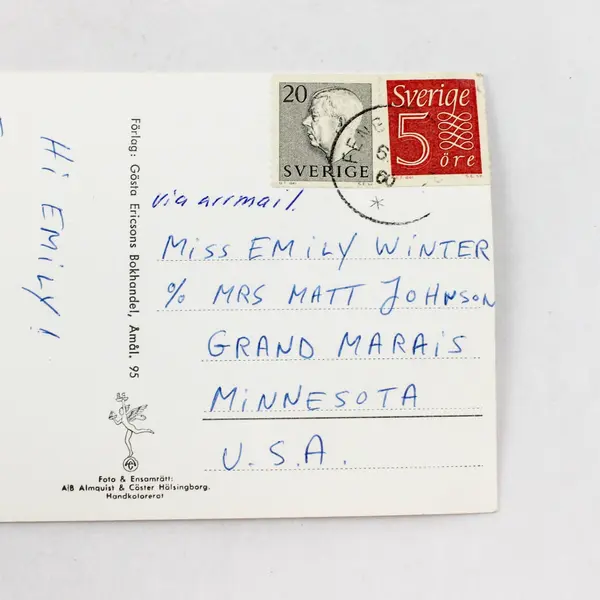 Hi EMiLY!
Förlag: Gösta Ericsons Bokhandel, Åmål. 95
20
SVERIGE
Sverige
5
öre
via airmail.
Miss EMiLY WiNTER
% MRS MATT JOHNSON
GRAND MARAiS
MiNNESOTA
U.S.A.
Foto & Ensamrätt:
A/B Almquist & Cöster Hälsingborg.
Handkolorerat